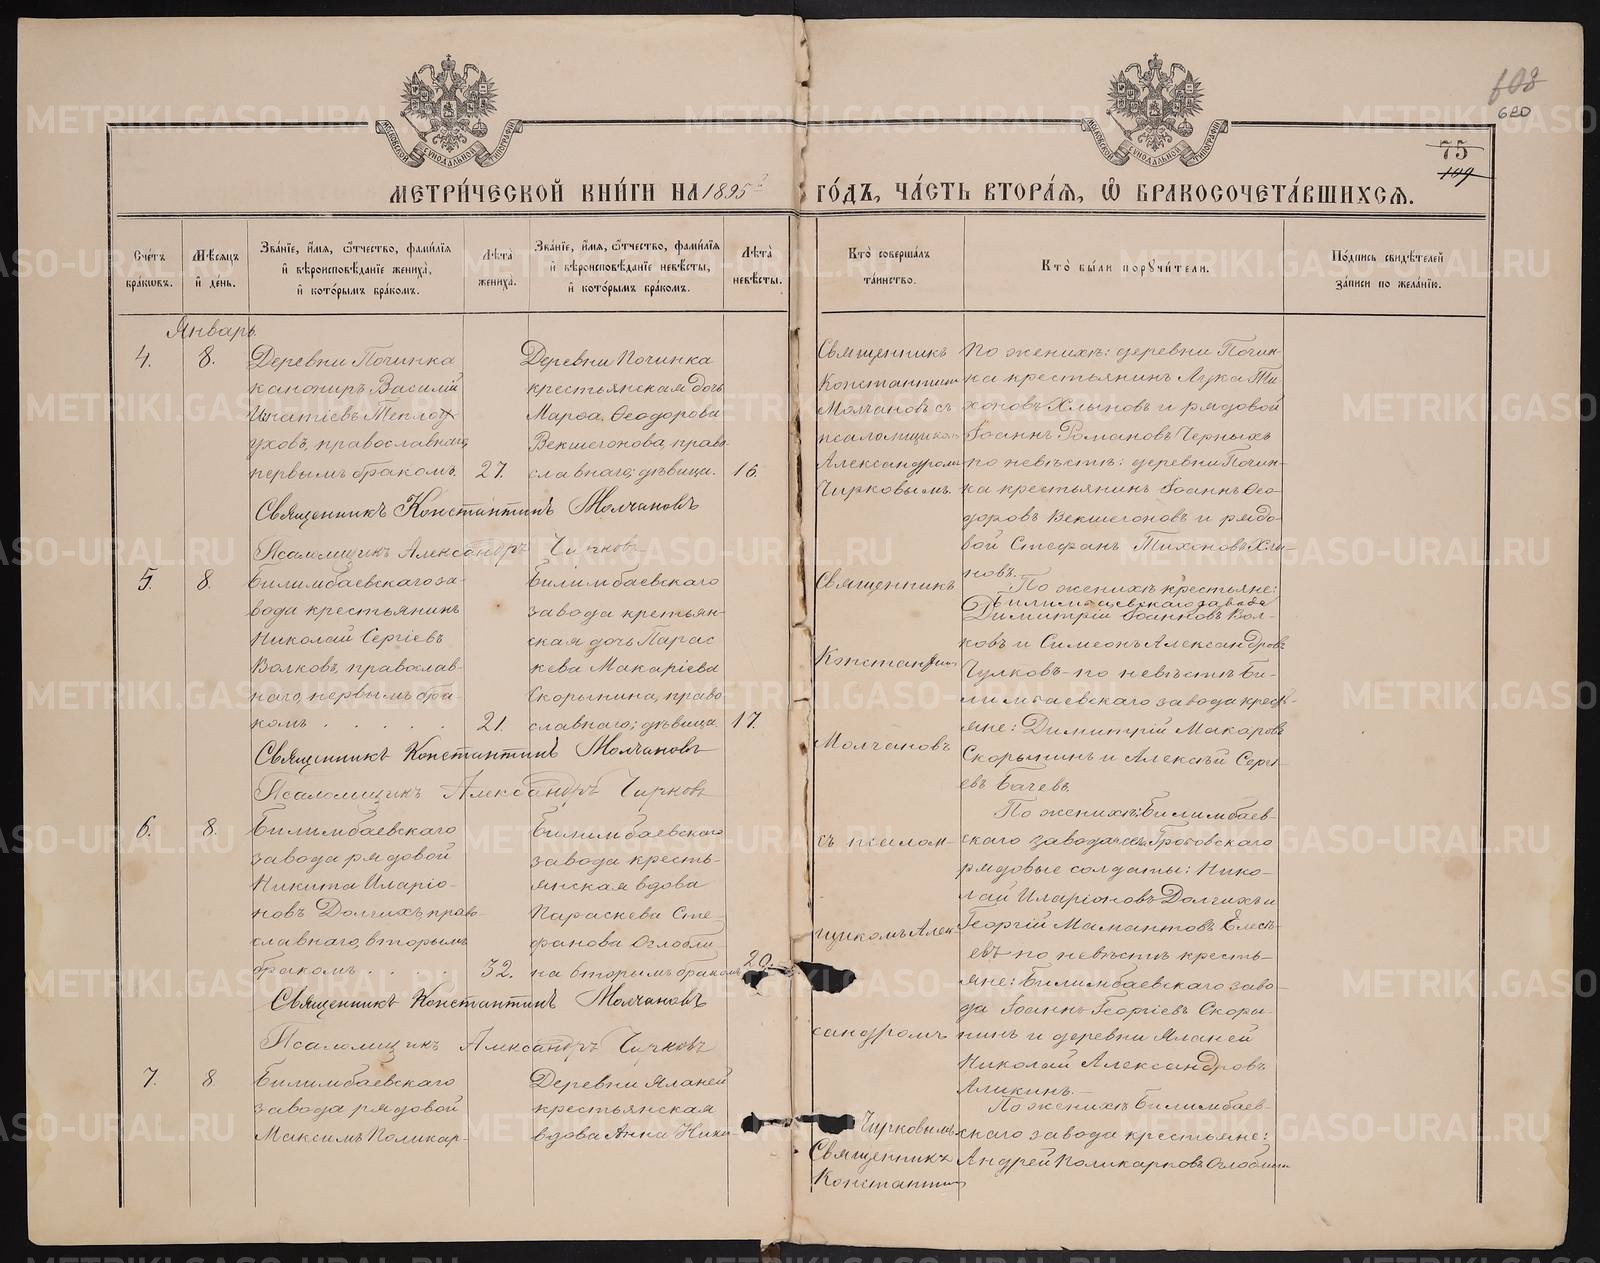 608
620
75
109
МЕТРИ́ЧЕСКОЙ КНИ́ГИ НА 1895й ГО́ДЪ, ЧА́СТЬ ВТОРА́Я, Ѽ БРАКОСОЧЕТА́ВШИХСЯ.
Сче́тъ бра́кѡвъ.
Мѣ́сяцъ и҆ де́нь.
Зва́нїе, и҆́мя, ѻ҆́тчество, фами́лїя
и҆ вѣроисповѣ́данїе жениха̀,
и҆ кото́рымъ бра́комъ.
Лѣ́та жениха̀.
Зва́нїе, и҆́мя, ѻ҆́тчество, фами́лїя
и҆ вѣроисповѣ́данїе невѣ́сты,
и҆ кото́рымъ бра́комъ.
Лѣ́та невѣ́сты.
Кто̀ соверша́лъ та́инство.
Кто̀ бы́ли порꙋчи́тели.
По́дпись свидѣ́телей за́писи по жела́нїю.
Январь
4.
8.
Деревни Починка
канониръ Василій
Игнатіевъ Теплоу
уховъ, православнаго
первымъ бракомъ.
27.
Деревни Починка
крестьянская дочь
Марѳа Ѳеодорова
Векшегонова, право
славнаго; дѣвица.
16.
Священникъ
Константинъ
Молчановъ съ
псаломщикомъ
Александромъ
Чирковымъ.
По женихѣ: деревни Почин-
ка крестьянинъ Лука Ти
хоновъ Хлыновъ и рядовой
Іоаннъ Романовъ Черныхъ
по невѣстѣ: деревни Почин-
ка крестьянинъ Іоаннъ Ѳео
доровъ Векшегоновъ и рядо-
вой Стефанъ Тихоновъ Хлы-
новъ.
Священникъ Константинъ Молчановъ
Псаломщикъ Александръ Чирковъ
5.
8.
Билимбаевскаго за-
вода крестьянинъ
Николай Сергіевъ
Волковъ, православ-
наго, первымъ бра-
комъ . . . . .
21.
Билимбаевскаго
завода кретьян-
ская дочь Парас
кева Макаріева
Скорынина, право
славнаго; дѣвица.
17.
Священникъ
Константинъ
Молчановъ
По женихѣ крестьяне:
Билимбаевскаго завода
Димитрій Іоанновъ Вол-
ковъ и Симеонъ Александровъ
Чулковъ- по невѣстѣ Би-
лимбаевскаго завода крестья-
яне: Димитрій Макаровъ
Скорынинъ и Алексѣй Серг-
евъ Бачевъ
Священникъ Константинъ Молчановъ
Псаломщикъ Александръ Чирковъ
6.
8.
Билимбаевскаго
завода рядовой
Никита Иларіо-
новъ Долгихъ, право-
славнаго, вторымъ
бракомъ . . . .
32.
Билимбаевскаго
завода кресть-
янская вдова
Параскева Сте-
фанова Оглобли-
на вторымъ бракомъ
29.
съ псалом-
щикомъ Алек-
сандромъ
Чирковымъ
По женихѣ: Билимбаев-
скаго завода
рядовые солдаты: Нико-
лай Иларіоновъ Долгихъ и
Георгій Мамантовъ Елесѣ-
евъ- по невѣстѣ кресть-
яне: Билимбаевскаго заво-
да Іоаннъ Георгіевъ Скоры-
нинъ и деревни Яланей
Николай Александровъ
Аликинъ.-
Священникъ Константинъ Молчановъ
Псаломщикъ Александръ Чирковъ
7.
8
Билимбаевскаго
завода рядовой
Максимъ Поликар-
Деревни Яланей
крестьянская
вдова Анна Нико-
Священникъ
Константинъ
По женихѣ Билимбаев-
скаго завода крестьяне:
Андрей Поликарповъ Оглоблинъ
METRIKI.GASO-URAL.RU